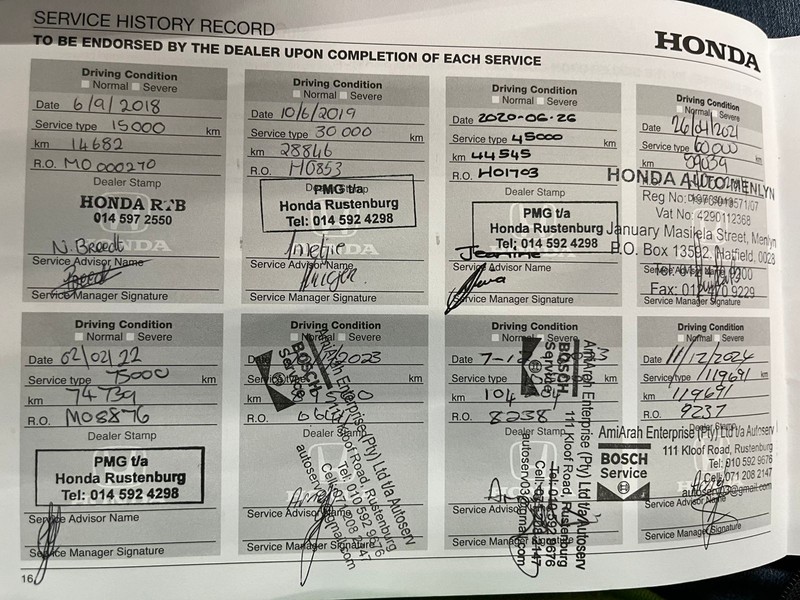 SERVICE HISTORY RECORD
TO BE ENDORSED BY THE DEALER UPON COMPLETION OF EACH SERVICE
HONDA
Driving Condition
Normal Severe
Date 6/9/2018
Service type 15000 km
km 14682
R.O. MO000270
Dealer Stamp
HONDA RTB
014 597 2550
N. Breedt
Service Advisor Name
Service Manager Signature
Driving Condition
Normal Severe
Date 10/6/2019
Service type 30 000 km
km 28846
R.O. H0853
Dealer Stamp
PMG t/a
Honda Rustenburg
Tel: 014 592 4298
Service Advisor Name
Service Manager Signature
Driving Condition
Normal Severe
Date 2020-06-26
Service type 45000 km
km 44545
R.O. H01703
Dealer Stamp
PMG t/a
Honda Rustenburg
Tel: 014 592 4298
Service Advisor Name
Service Manager Signature
Driving Condition
Normal Severe
Date 26/04/2021
Service type 60000 km
km 59039
R.O.
HONDA AUTO MENLYN
Vat No: 4290112368
January Masilela Street, Menlyn
P.O. Box 13592, Hatfield, 0028
Service Manager Signature
Driving Condition
Normal Severe
Date 02/02/22
Service type 75000 km
km 74739
R.O. M08876
Dealer Stamp
PMG t/a
Honda Rustenburg
Tel: 014 592 4298
Service Advisor Name
Service Manager Signature
Driving Condition
Normal Severe
Date 2023
Service type
km
R.O.
Dealer Stamp
BOSCH
Service
AmiArah Enterprise (Pty) Ltd t/a Autoserv
111 Kloof Road, Rustenburg
Tel: 010 592 9676
Service Advisor Name
Service Manager Signature
Driving Condition
Normal Severe
Date
Service type km
km
R.O. 8238
Dealer Stamp
BOSCH
Service
AmiArah Enterprise (Pty) Ltd t/a Autoserv
111 Kloof Road, Rustenburg
Tel: 010 592 9676
Service Advisor Name
Service Manager Signature
Driving Condition
Normal Severe
Date 11/12/2024
Service type 119691 km
km 119691
R.O. 9237
Dealer Stamp
AmiArah Enterprise (Pty) Ltd t/a Autoserv
BOSCH
Service
111 Kloof Road, Rustenburg
Tel: 010 592 9676
Cell: 071 208 2147
Service Advisor Name
Service Manager Signature
16